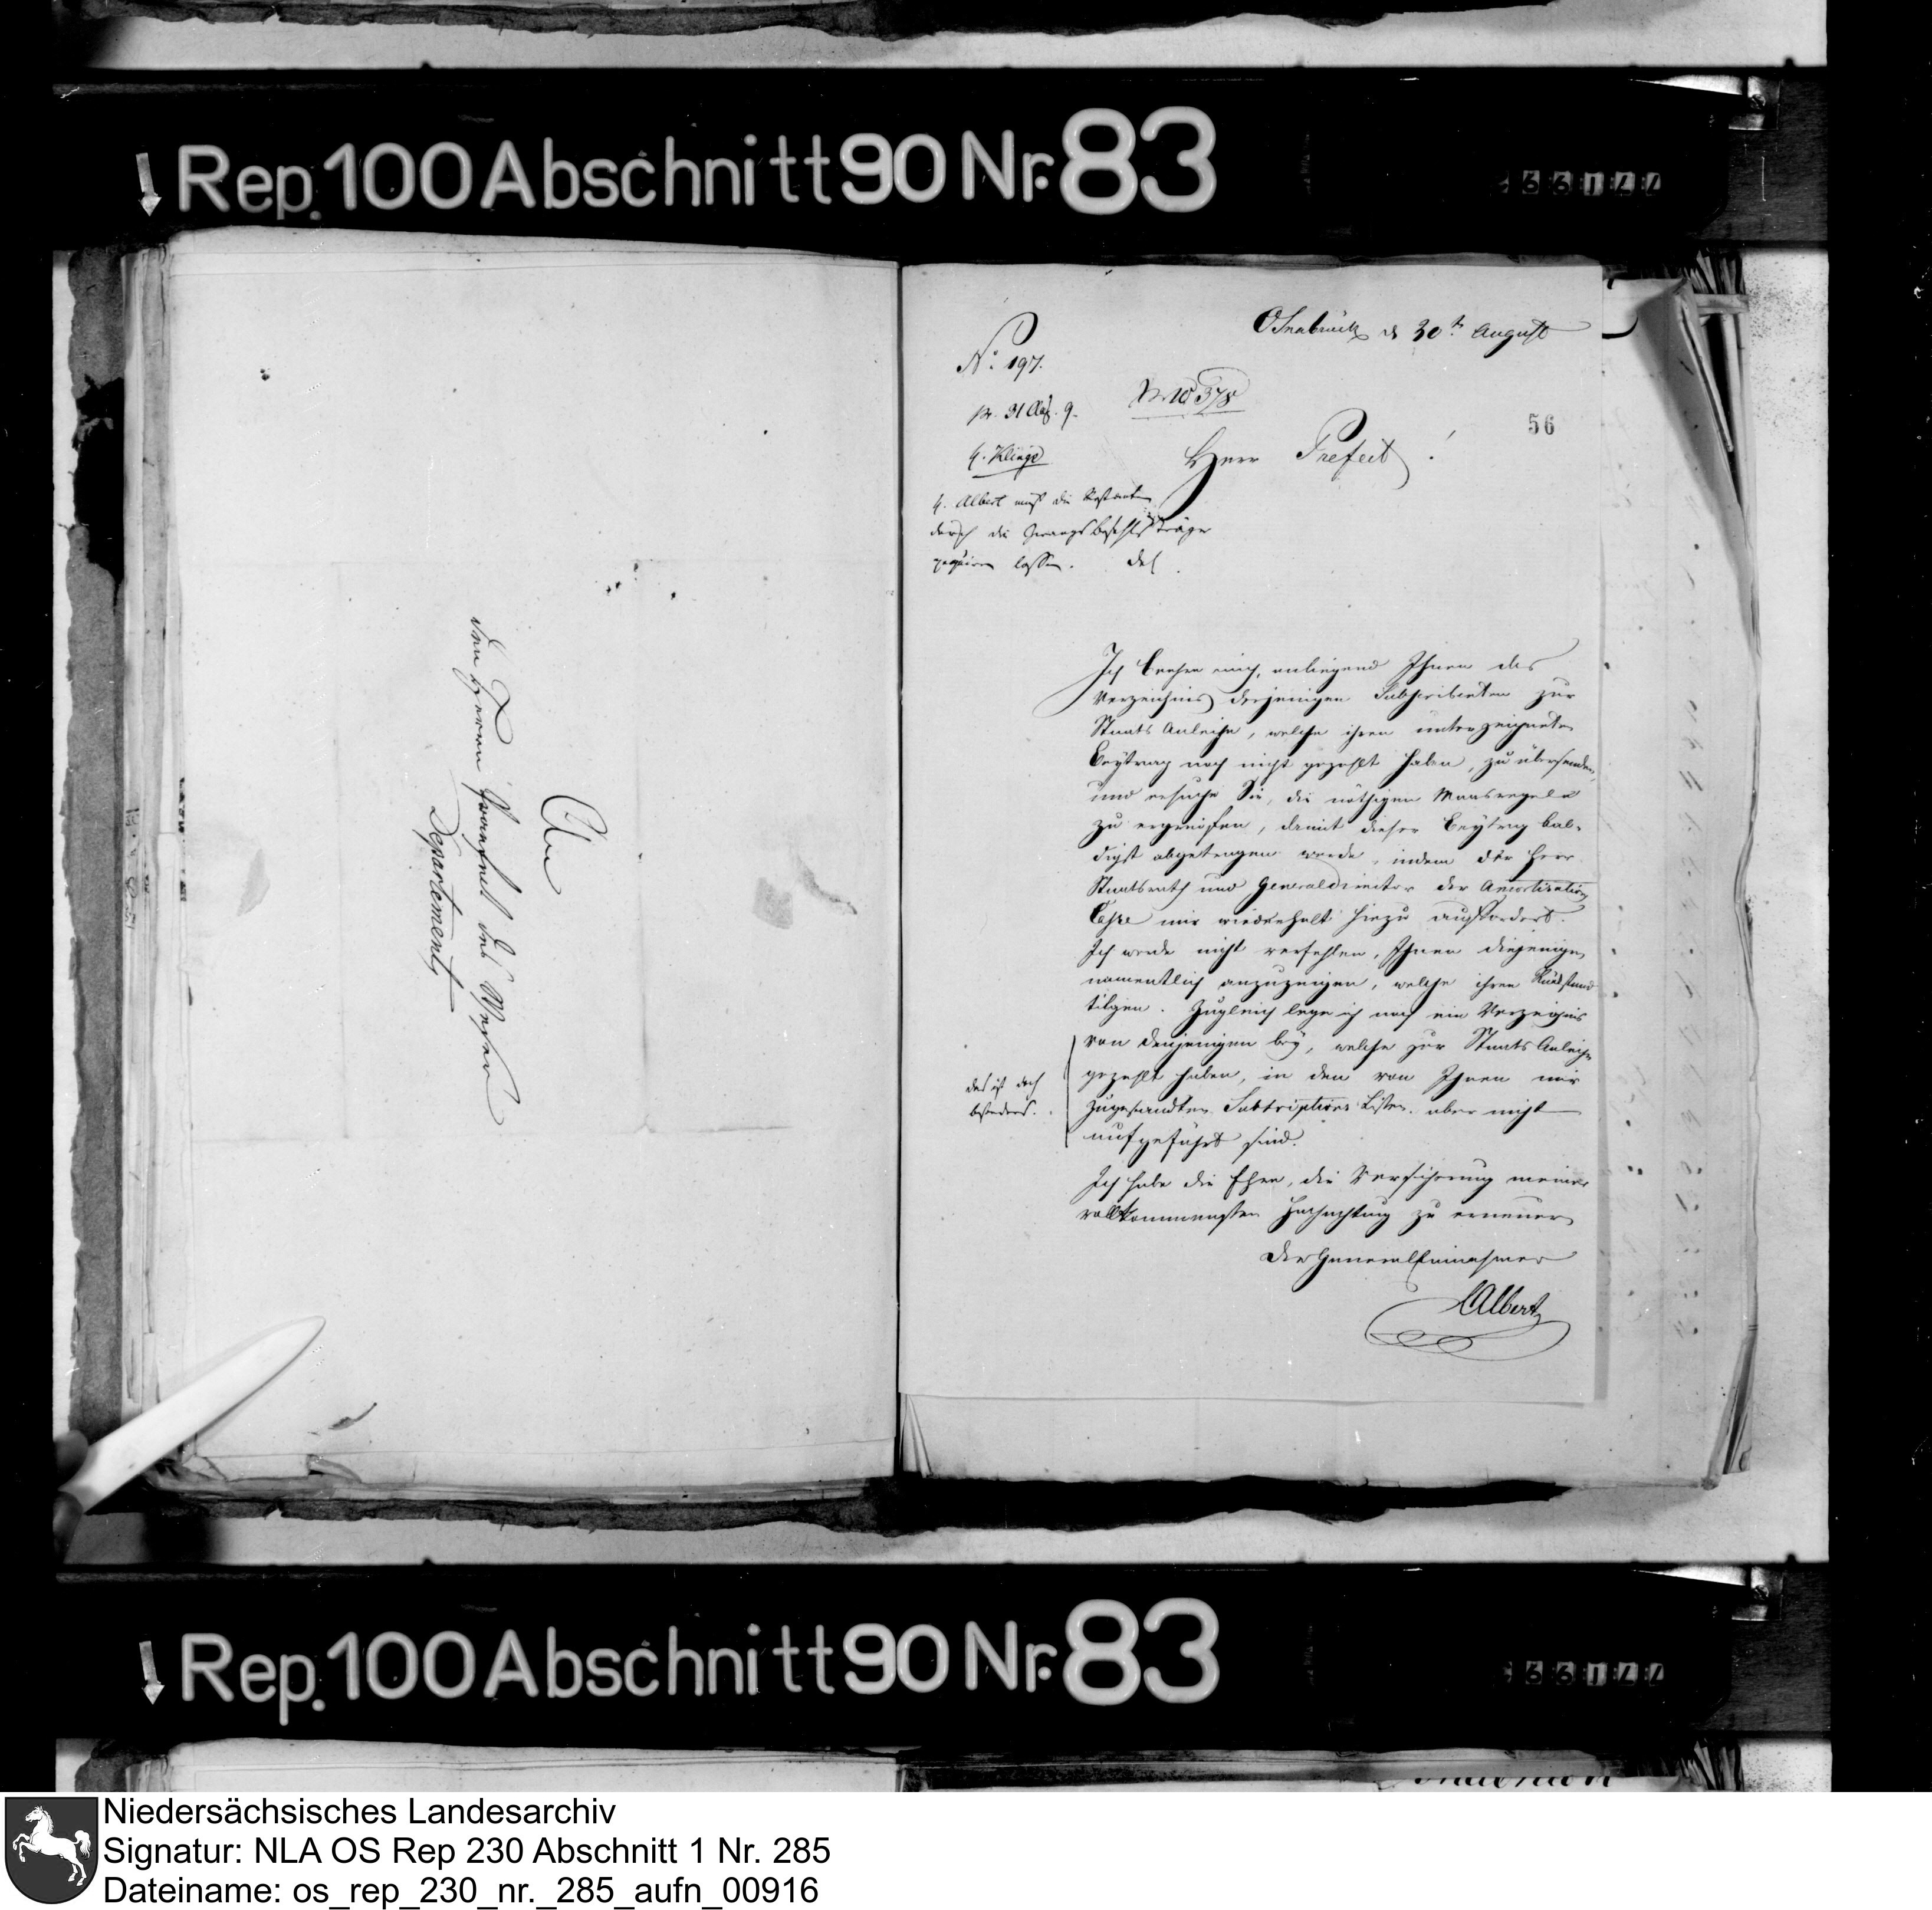 Rep. 100 Abschnitt 90 Nr. 83
An
den Herrn Praefect des Weser
Departements
Osnabrück d 30t August
No. 197.
pr. 31 Aug. 9.
Nr 10378
56
H. Klinge
Herr Prefect!
H. Albert muß die Restanten
durch die Zwangsbefehlsträger
lassen.
Ich beehre mich, anliegend Ihnen das
Verzeichnis derjenigen Subscribenten zur
Staats Anleihe, welche ihren unterzeichneten
Beytrag noch nicht gezahlt haben, zu übersenden,
und ersuche Sie, die nöthigen Maasregeln
zu ergreifen, damit dieser Beytrag bal-
digst abgetragen werde, indem der Herr
Staatsrath und Generaldirector der Amortisations
Casse mir wiederholt hiezu auffordert.
Ich werde nicht verfehlen, Ihnen diejenigen
namentlich anzuzeigen, welche ihren Rückstand
tilgen. Zugleich lege ich noch ein Verzeichnis
von denjenigen bey, welche zur Staats Anleihe
gezahlt haben, in den von Ihnen mir
zugesandten Subscriptions Listen aber nicht
aufgeführt sind.
das ist doch
besonders.
Ich habe die Ehre, die Versicherung meiner
vollkommensten Hochachtung zu erneuern
Der General Einnehmer
Albert
Rep. 100 Abschnitt 90 Nr. 83
Niedersächsisches Landesarchiv
Signatur: NLA OS Rep 230 Abschnitt 1 Nr. 285
Dateiname: os_rep_230_nr._285_aufn_00916